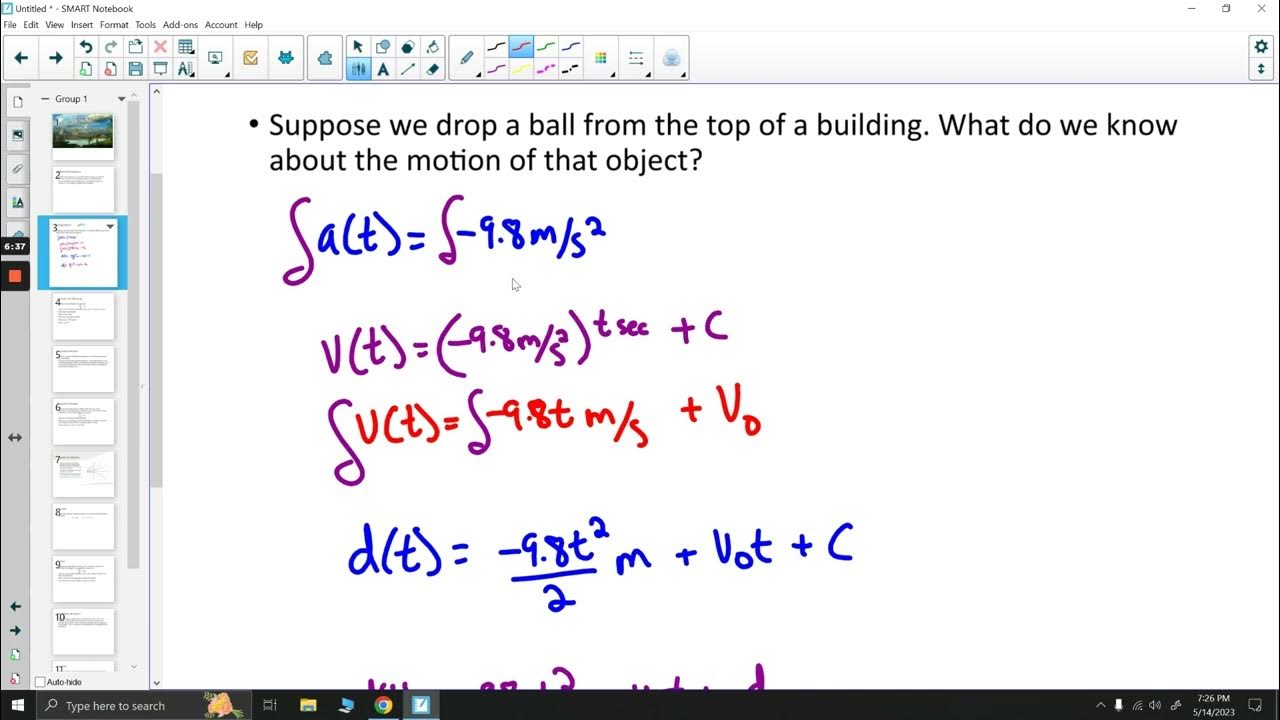 Untitled * - SMART Notebook
File Edit View Insert Format Tools Add-ons Account Help
Group 1
• Suppose we drop a ball from the top of a building. What do we know
about the motion of that object?
∫a(t) = ∫-9.8m/s²
V(t) = (-9.8m/s²) t sec + C
∫V(t) = ∫-9.8t m/s + V₀
d(t) = -9.8t²/2 m + V₀t + C
1
2
3
4
5
6
7
8
9
10
11
6:37
Auto-hide
Type here to search
7:26 PM
5/14/2023